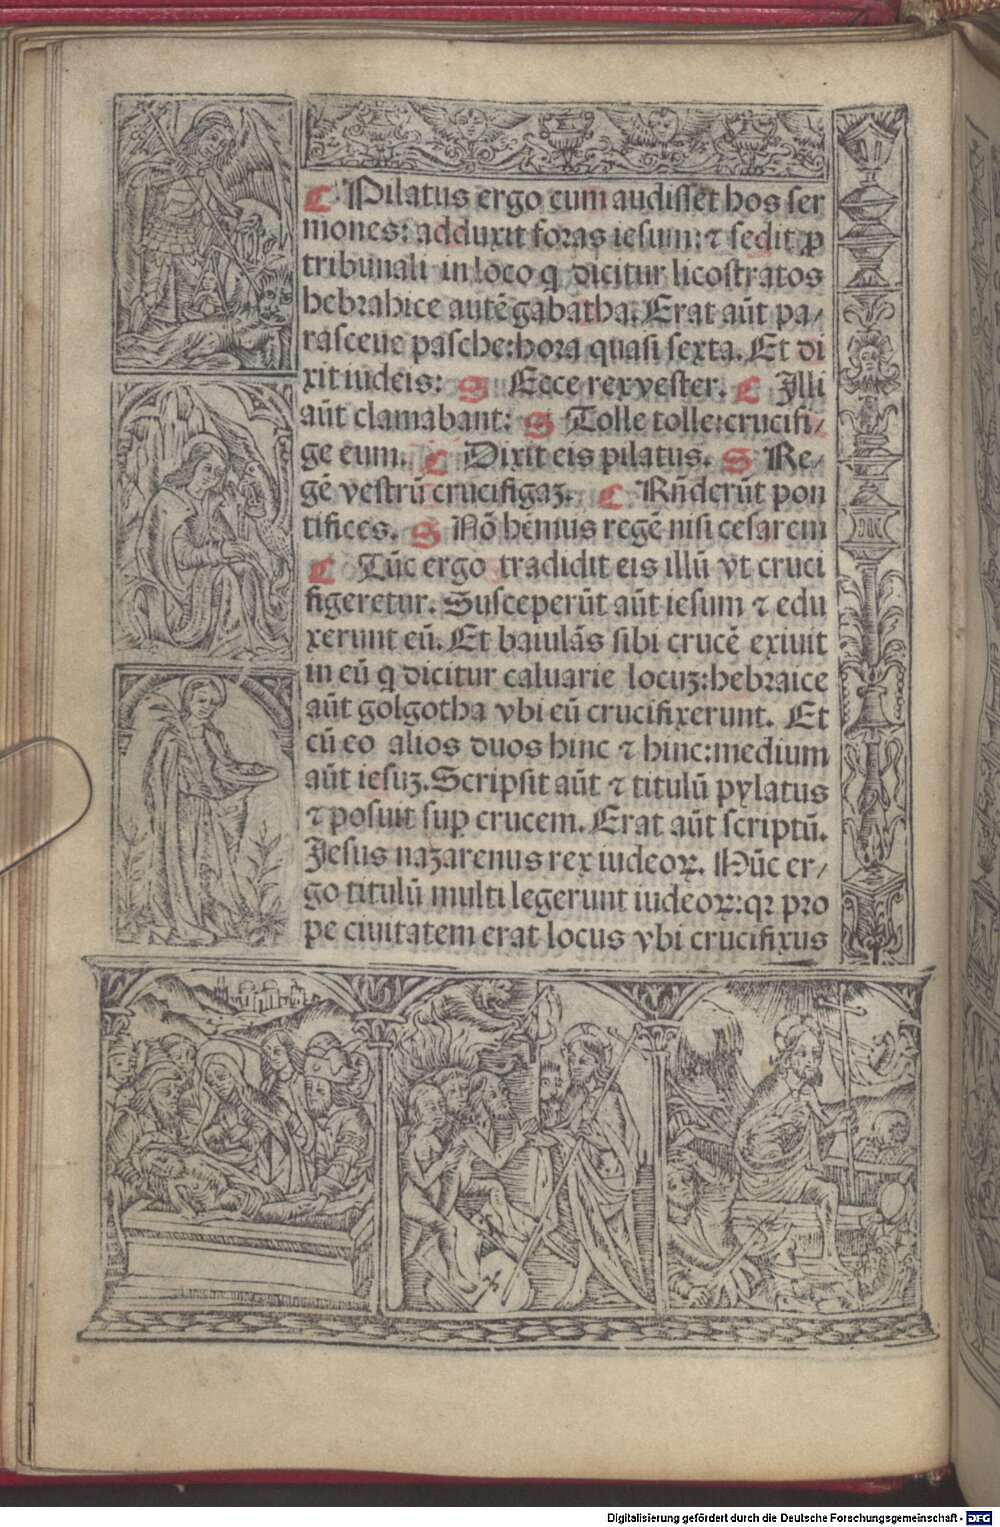 C Pilatus ergo cum audisset hos ser
mones: adduxit foras iesum: ⁊ sedit ꝓ
tribunali in loco q̄ dicitur licostratos
hebrahice autē gabatha. Erat aūt pa/
rasceue pasche: hora quasi sexta. Et di
xit iudeis: S Ecce rex vester. C Illi
aūt clamabant: S Tolle tolle: crucifi/
ge eum. C Dixit eis pilatus. S Re/
gē vestrū crucifigaʒ. C Rn̄derūt pon
tifices. S Nō hēmus regē nisi cesarem
C Tūc ergo tradidit eis illū vt cruci
figeretur. Susceperūt aūt iesum ⁊ edu
xerunt eū. Et baiulās sibi crucē exiuit
in eū q̄ dicitur caluarie locuʒ: hebraice
aūt golgotha vbi eū crucifixerunt. Et
cū eo alios duos hinc ⁊ hinc: medium
aūt iesuʒ. Scripsit aūt ⁊ titulū pylatus
⁊ posuit suꝑ crucem. Erat aūt scriptū.
Jesus nazarenus rex iudeoꝝ. Hūc er/
go titulū multi legerunt iudeoꝝ: qꝛ pro
pe ciuitatem erat locus vbi crucifixus
Digitalisierung gefördert durch die Deutsche Forschungsgemeinschaft - DFG